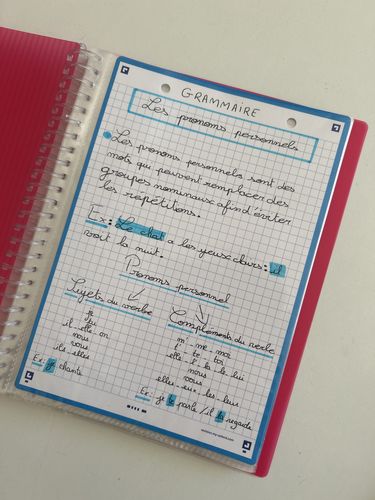 GRAMMAIRE
Les pronoms personnels
Les pronoms personnels sont des
mots qui peuvent remplacer des
groupes nominaux afin d'éviter
les répétitions.
Ex: Le chat a les yeux clairs : il
voit la nuit.
Pronoms personnel
Sujets du verbe
je
tu
il - elle - on
nous
vous
ils - elles
Ex: je chante
Compléments du verbe
m' - me - moi
t' - te - toi
elle - l' - la - le - lui
nous
vous
elles - eux - les - leur
Ex: je le parle / il la regarde